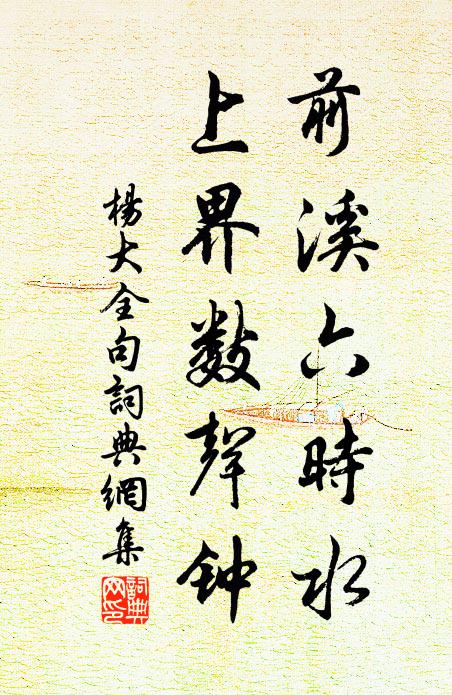 前溪六時水
上界数聲钟
楊大全句詞典網集
詞典网印